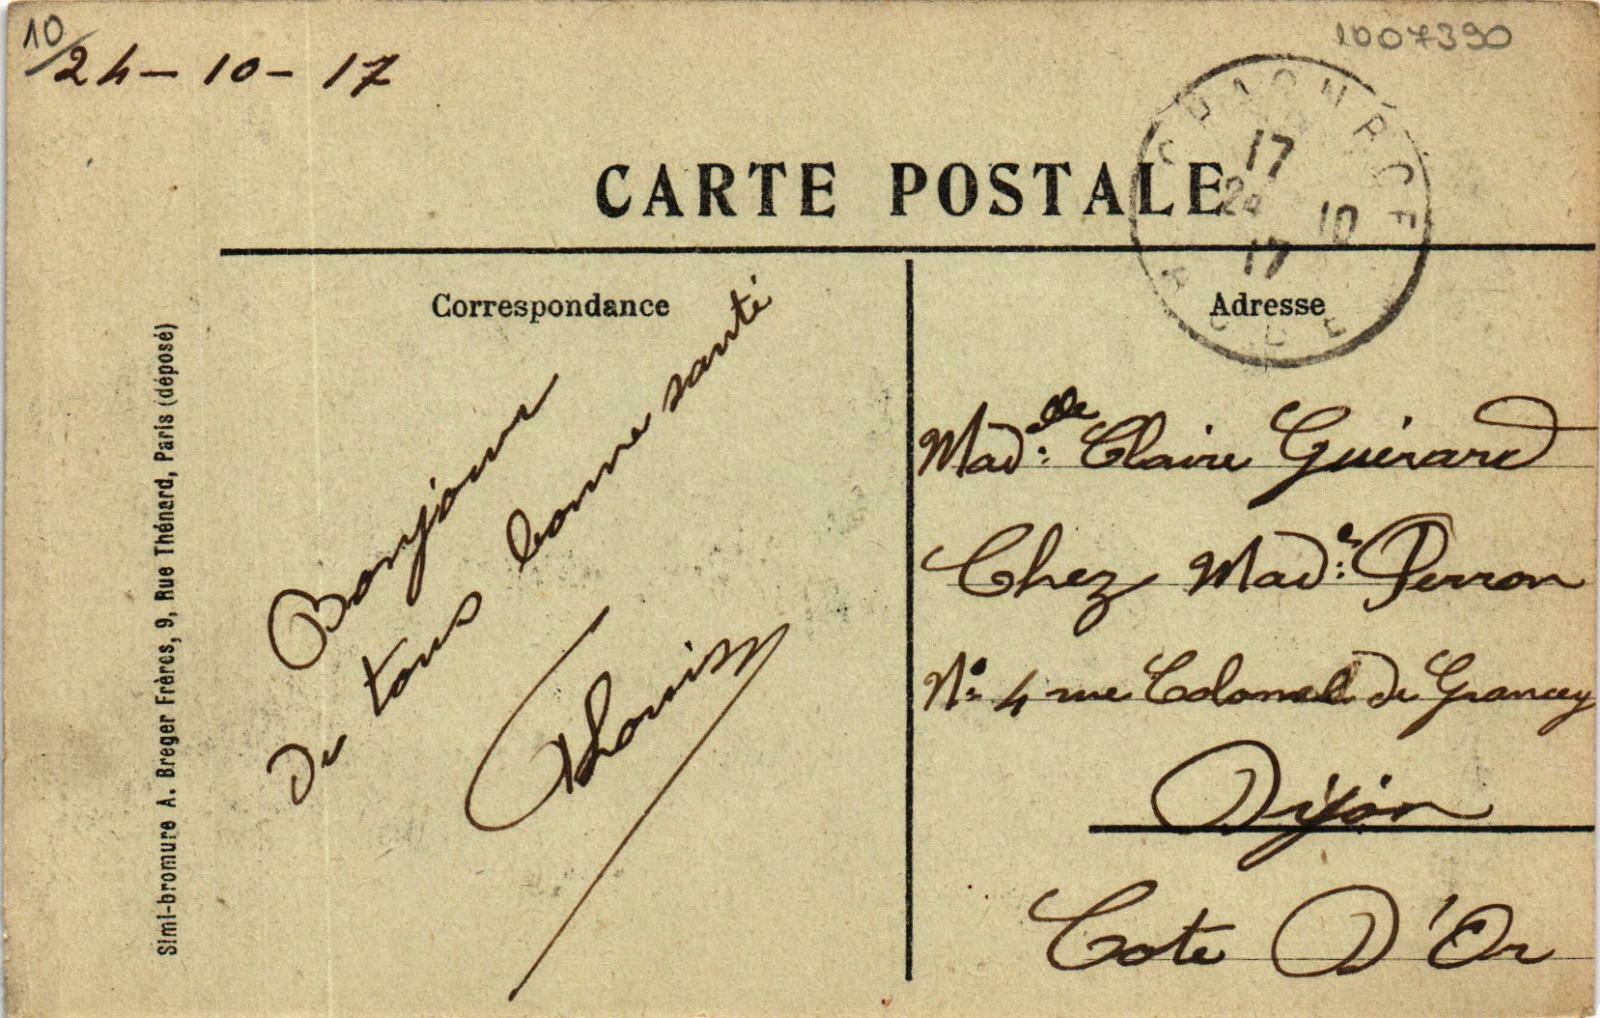 10/
24-10-17
1007390
CARTE POSTALE
CHAOURCE
17
24 10
17
AUBE
Correspondance
Adresse
Bonjour
De tous bonne santé
Madelle: Claire Guérard
Chez Made: Perron
No= 4 rue Colonel De Grancey
Dijon
Cote D'Or
Simi-bromure A. Breger Frères, 9, Rue Thénard, Paris (déposé)